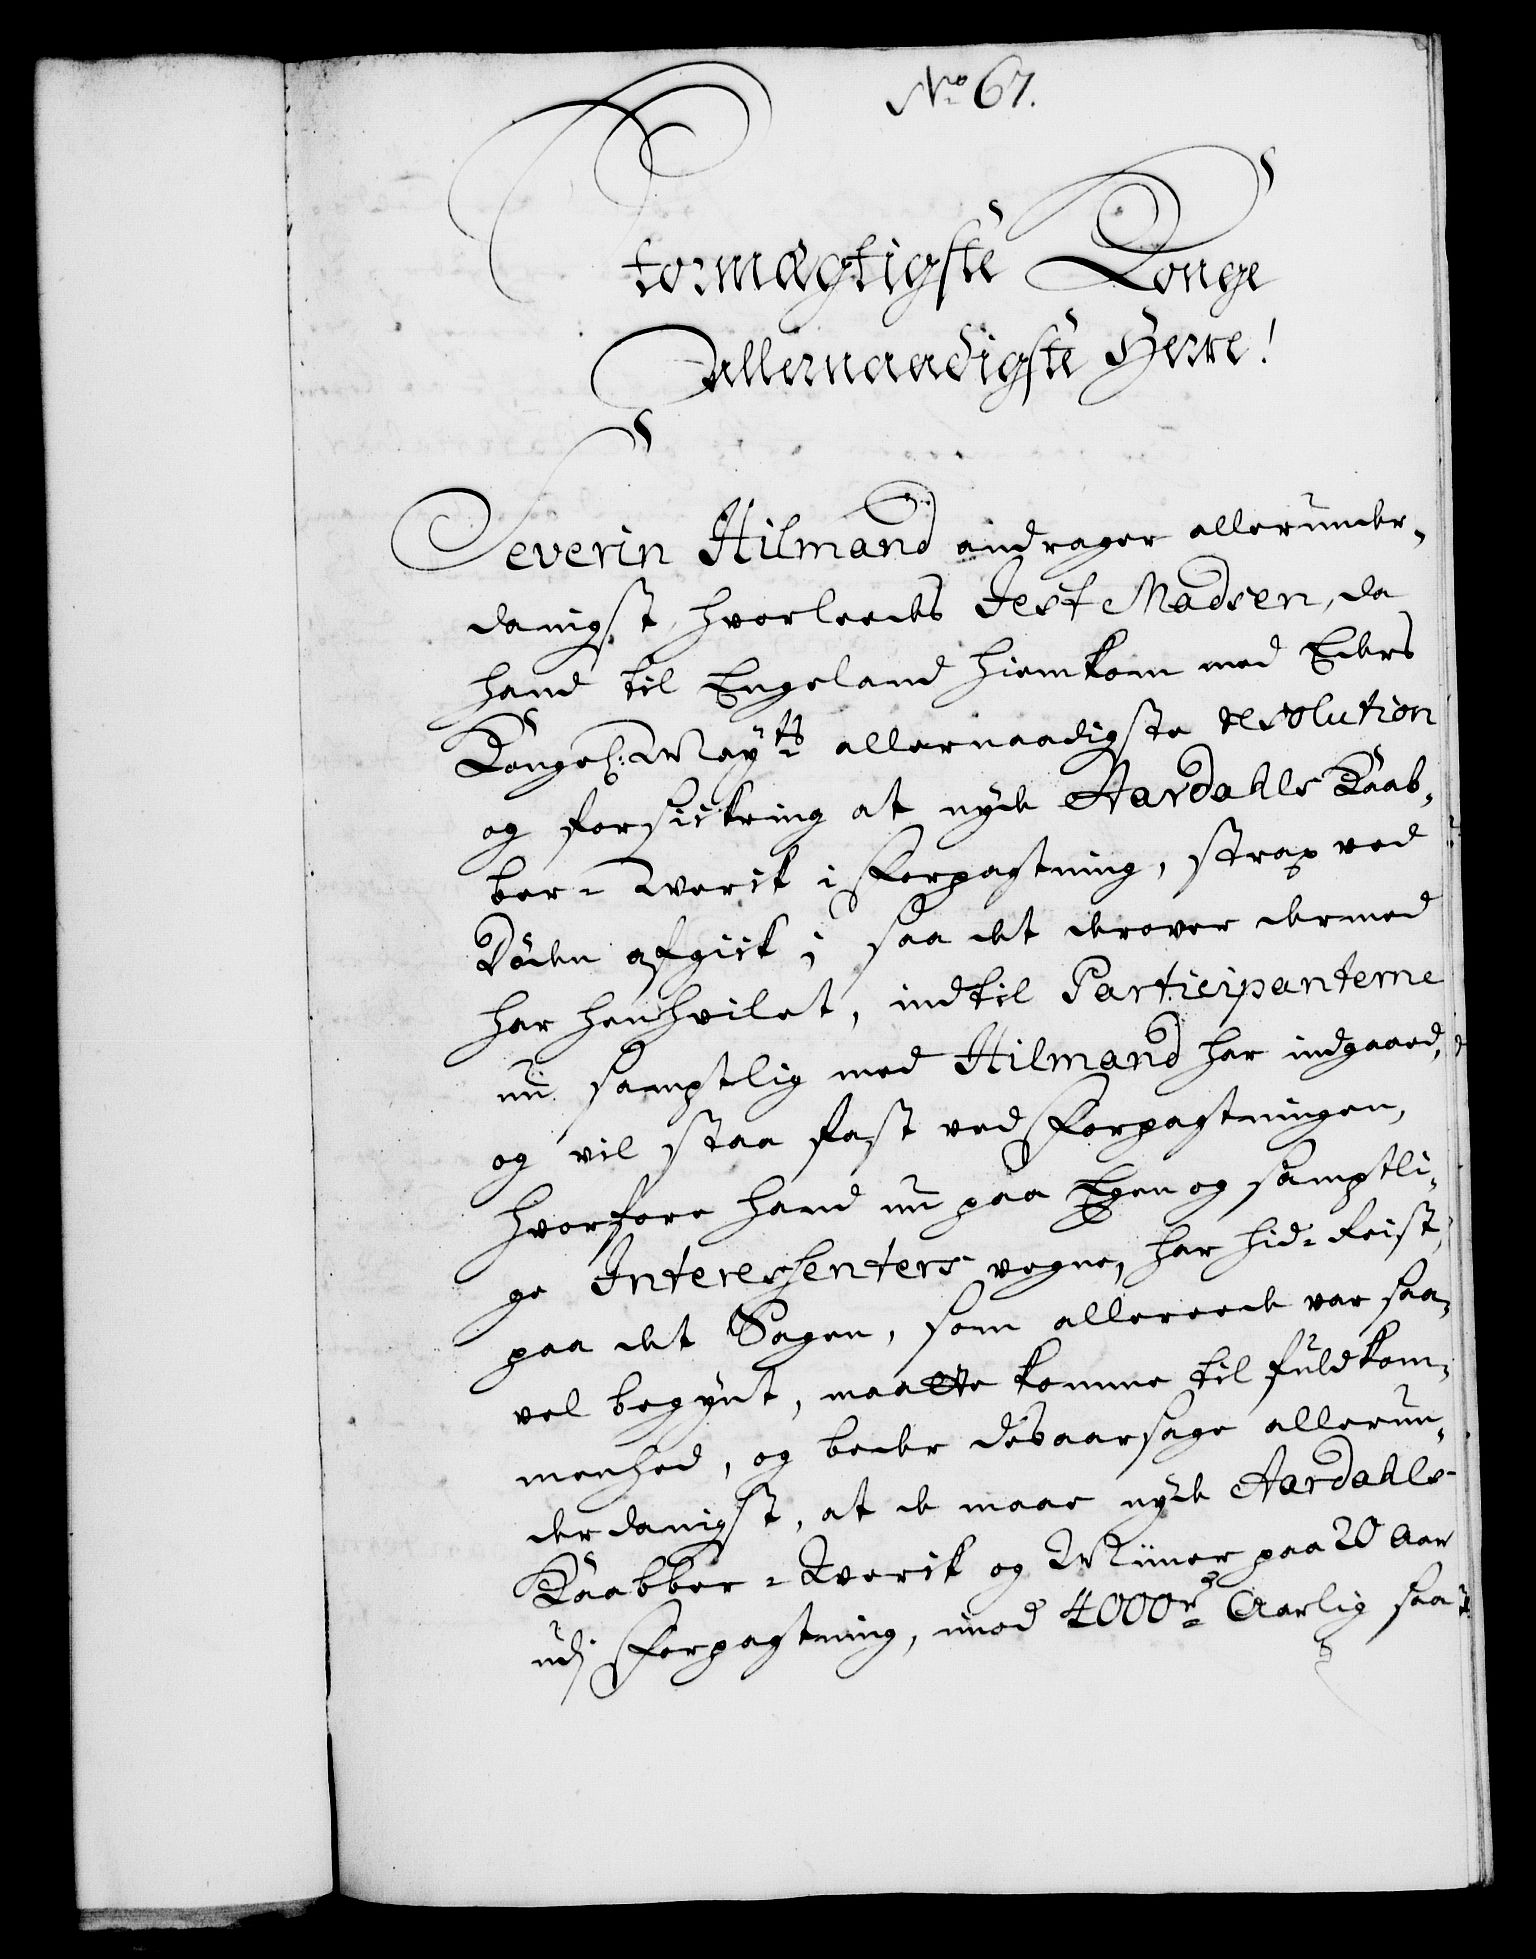 No 67.
Stormægtigste Konge
Allernaadigste Herre!
Severin Hilmand andrager allerunder-
danigst, hvorleedes Jest Madsen, da
hand til Engeland hiemkom med Eders
Kongel: Mayts allernaadigste resolution
og forsickring at nyde Aardahls Kaab-
ber-Werck i Forpagtning, strax ved
Döden afgick; saa det derover dermed
har henhvilet, indtil Participanterne
nu samptlig med Hilmand har indgaaed,
og vil staa fast ved Forpagtningen,
hvorfore hand nu paa Egen og samptli-
ge Interessenters vegne, har hid-Reist,
paa det Sagen, som allereede var saa
vel begynt, maatte komme til fuldkom-
menhed, og beder desaarsage allerun-
derdanigst, at de maae nyde Aardahls
Kaabber-Werck og Miiner paa 20 Aar
udj Forpagtning, imod 4000 r Aarlig saa